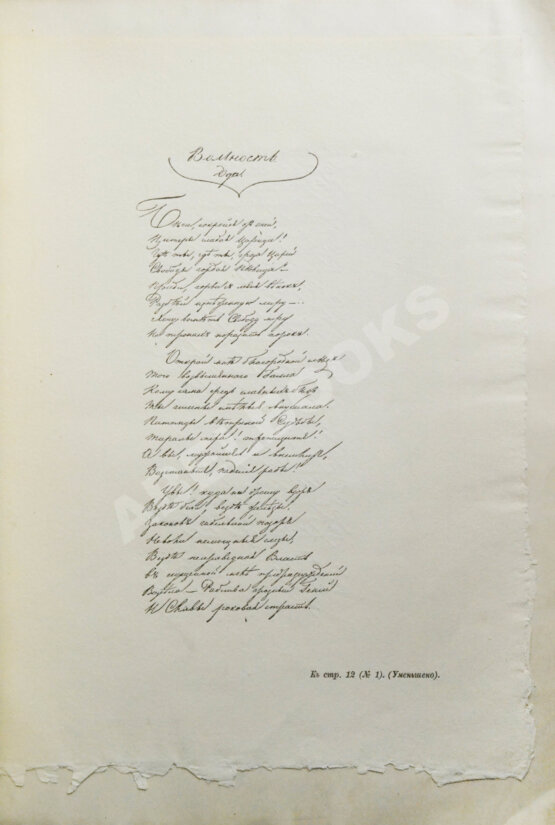 Вольность
Ода.
Бѣги, сокройся отъ очей,
Цитеры слабая Царица!
Гдѣ ты, гдѣ ты, гроза Царей
Свободы гордая пѣвица? —
Приди, сорви съ меня вѣнокъ,
Разбей изнѣженную лиру —..
Хочу воспѣть Свободу міру
На тронахъ поразить порокъ.
Открой мнѣ благородный слѣдъ
Того возвышеннаго Галла
Кому сама средь славныхъ бѣдъ
Ты гимны смѣлые внушала.
Питомцы вѣтренной Судьбы,
Тираны міра! трепещите!
А вы, мужайтесь и внемлите,
Возстаньте, падшіе рабы!
Увы! куда ни брошу взоръ
Вездѣ бичи вездѣ желѣзы.
Законовъ гибельный позоръ
Неволи немощныя слезы;
Вездѣ неправедная Власть
Въ сгущенной мглѣ предразсужденій
Возсѣла — Рабства грозный Геній
И Славы роковая страсть.
Къ стр. 12 (№ 1). (Уменьшено).
BOOKS